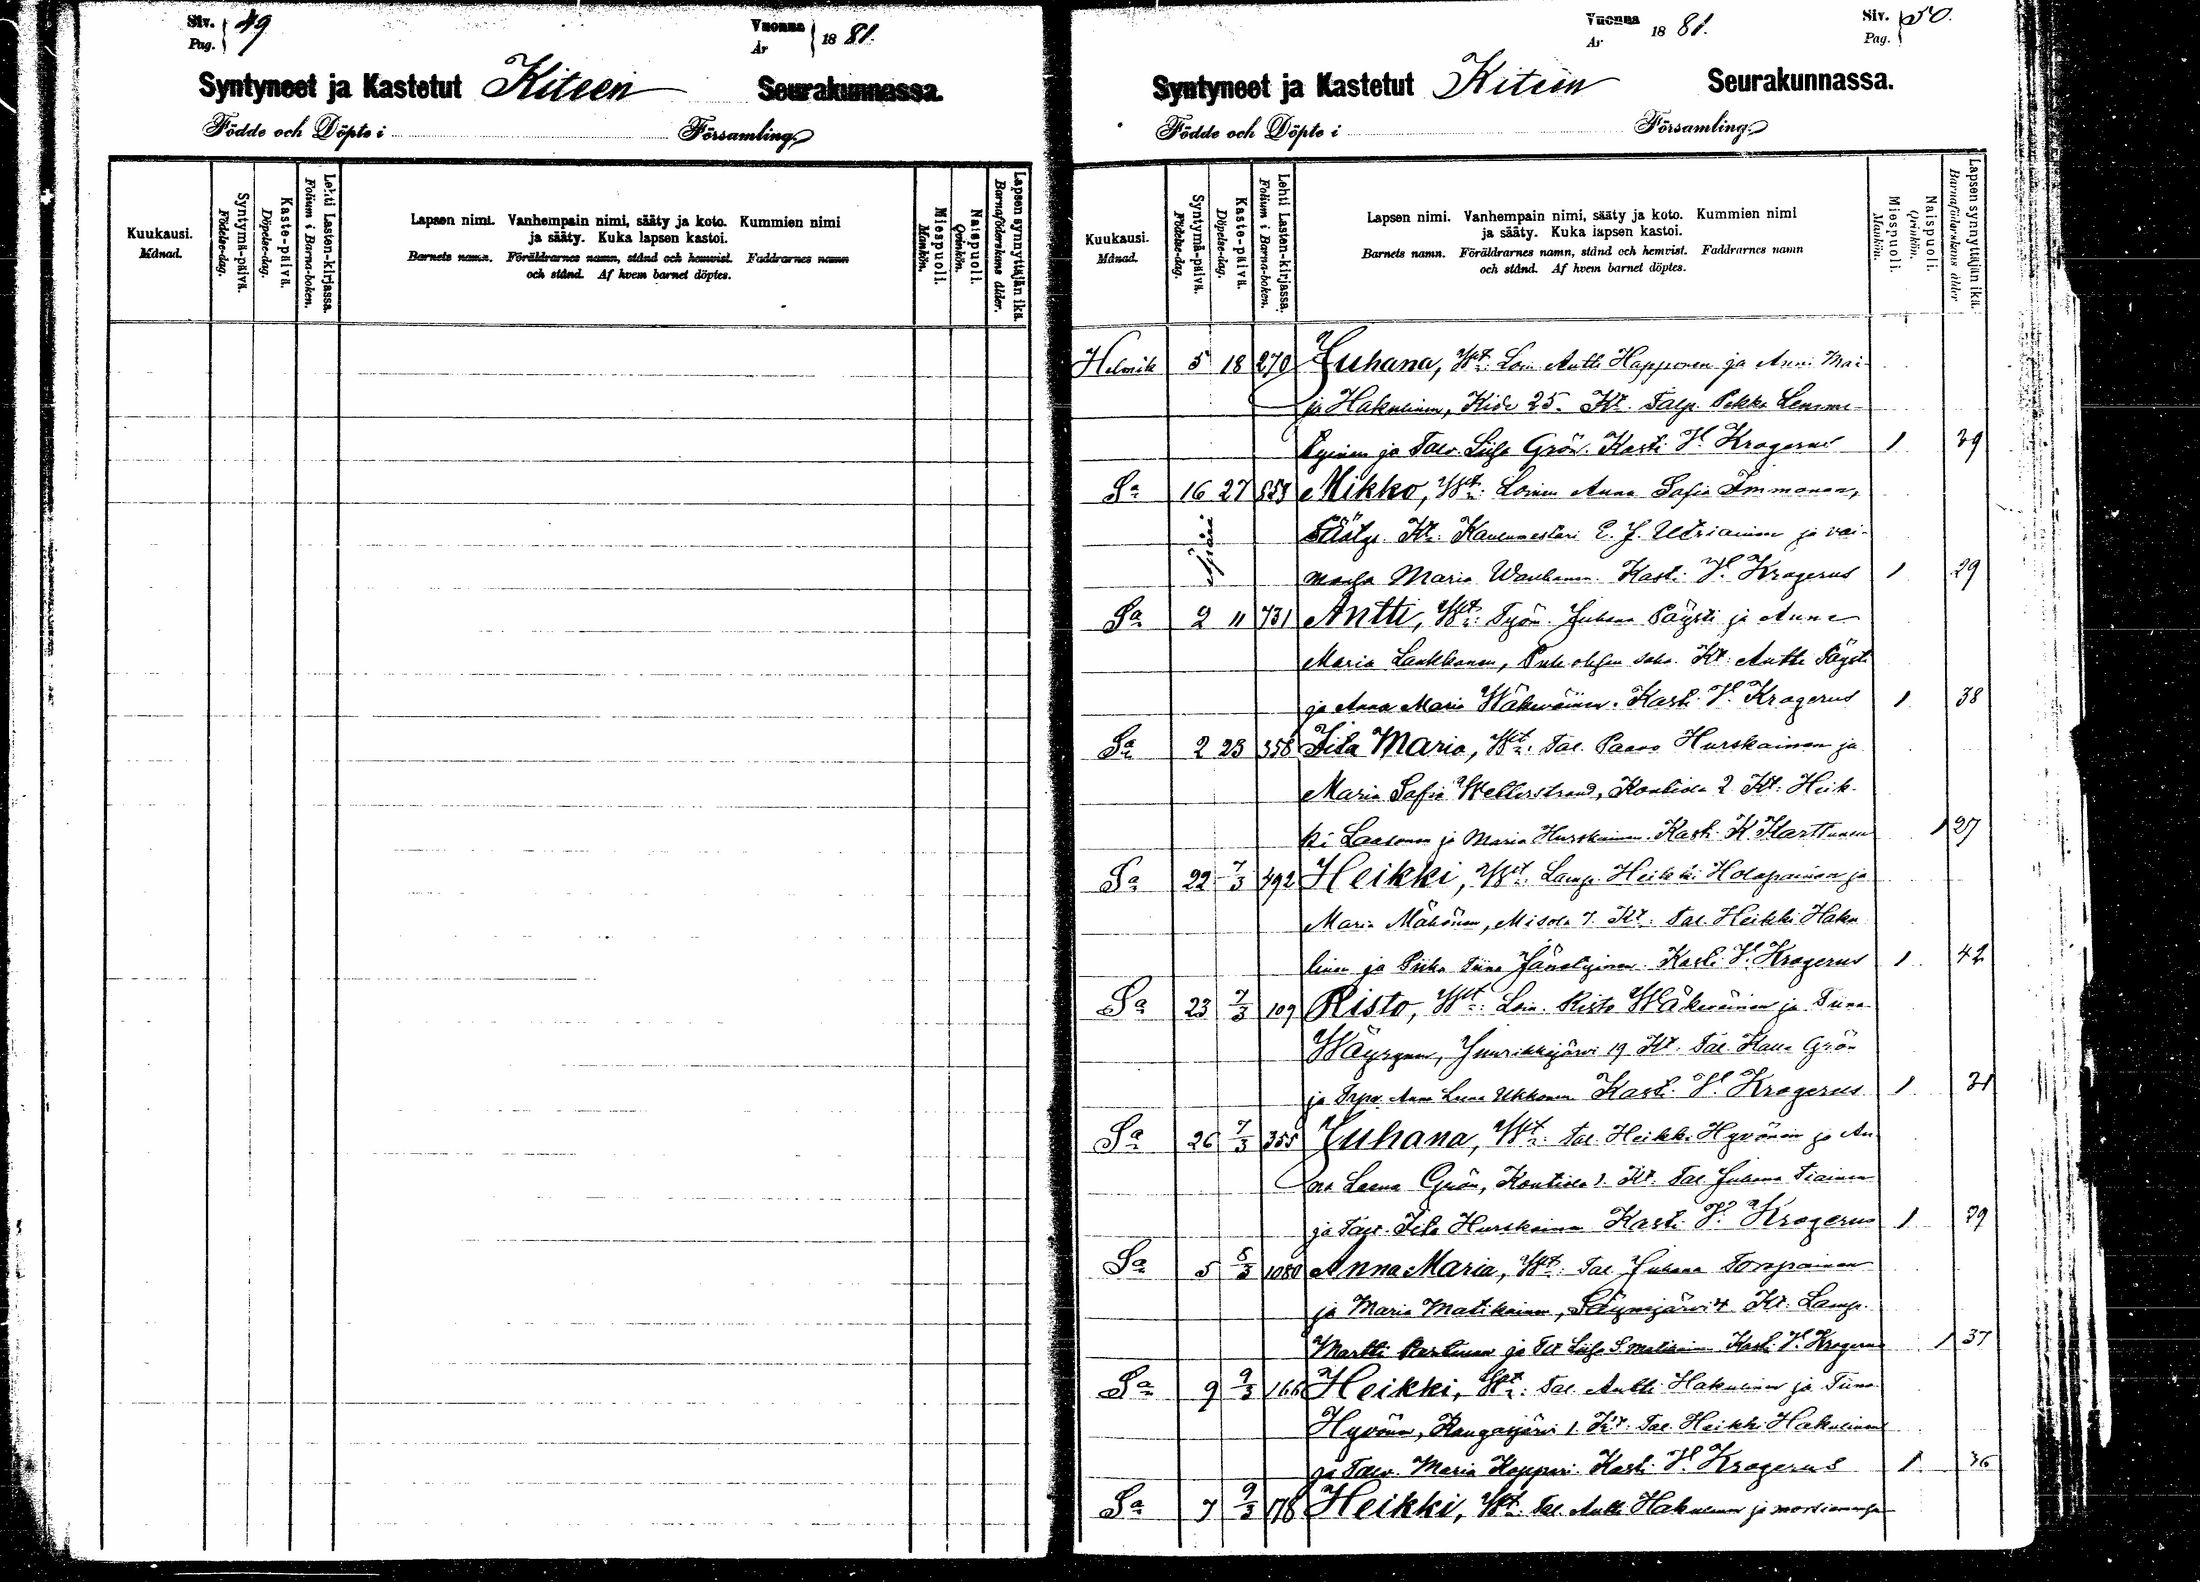 Siv. 49
Pag.
Vuonna 1881.
År
Syntyneet ja Kastetut Kiteen Seurakunnassa.
Födde och Döpte i Församling
Kuukausi.
Månad.
Syntymä-päivä.
Födelse-dag.
Kaste-päivä.
Döpelse-dag.
Lehti Lasten-kirjassa.
Folium i Barna-boken.
Lapsen nimi. Vanhempain nimi, sääty ja koto. Kummien nimi
ja sääty. Kuka lapsen kastoi.
Barnets namn. Föräldrarnes namn, stånd och hemvist. Faddrarnes namn
och stånd. Af hvem barnet döptes.
Miespuoli.
Mankön.
Naispuoli.
Qvinkön.
Lapsen synnyttäjän ikä.
Barnaföderskans ålder.
Vuonna 1881.
År
Siv. 50.
Pag.
Syntyneet ja Kastetut Kiteen Seurakunnassa.
Födde och Döpte i Församling
Kuukausi.
Månad.
Syntymä-päivä.
Födelse-dag.
Kaste-päivä.
Döpelse-dag.
Lehti Lasten-kirjassa.
Folium i Barna-boken.
Lapsen nimi. Vanhempain nimi, sääty ja koto. Kummien nimi
ja sääty. Kuka lapsen kastoi.
Barnets namn. Föräldrarnes namn, stånd och hemvist. Faddrarnes namn
och stånd. Af hvem barnet döptes.
Miespuoli.
Mankön.
Naispuoli.
Qvinkön.
Lapsen synnyttäjän ikä.
Barnaföderskans ålder
Helmik 5 18 270 Juhana, Wt: Loin Antti Happonen ja Anni Mai-
ja Hakulinen, Kide 25. Kt. Talp. Pekka Lemme-
tyinen ja Talv. Liisa Grön. Kasti V. Krogerus 1
Sa 16 27 Mikko, Wt: Loinen Anna Sofia Immonen,
Kt. E. J. Utriainen ja vai-
monsa Maria Kasti V. Krogerus 1 29
Sa 2 11 731 Antti, Wt: Työm. Juhana Päysti ja Anna
Maria Laukkanen, Kt. Antti Päysti
ja Anna Maria Wäkeväinen. Kasti V. Krogerus 1 38
Sa 2 23 358 Iita Maria, Wt: Tal. Paavo Hurskainen ja
Maria Sofia Wellerstrand, Kontiola 2. Kt. Heik-
ki Laasonen ja Maria Hurskainen. Kasti K. Karttunen 1 27
Sa 22 7/3 492 Heikki, Wt: Lamp. Heikki Holopainen ja
Maria Mähönen, Misola 7. Kt. Tal. Heikki Haku
linen ja Piika Tiina Jänatyinen. Kasti V. Krogerus 1 42
Sa 23 7/3 109 Risto, Wt: Loin. Risto Wäkeväinen ja Tiina
Wäyrynen, Juurikkajärvi 19 Kt. Tal. Grön
ja Anna Leena Ukkonen Kasti V. Krogerus 1 31
Sa 26 7/3 355 Juhana, Wt: Tal. Heikki Hyvönen ja An
na Leena Grön, Kontiola 1. Kt. Tal. Juhana Tiainen
ja Iita Hurskainen Kasti V. Krogerus 1
Sa 5 8/3 1080 Anna Maria, Wt: Tal. Juhana Toropainen
ja Maria Matikainen, Säynejärvi 4 Kt. Lamp.
Martti Partanen ja Liisa Kasti V. Krogerus 1 37
Sa 9 9/3 166 Heikki, Wt: Tal. Antti Hakulinen ja Tiina
Hyvönen, Kangasjärvi 1. Kt. Tal. Heikki Hakulinen
ja Talv. Maria Kasti V. Krogerus 1 36
Sa 7 9/3 178 Heikki, Wt: Tal. Antti Hakulinen ja